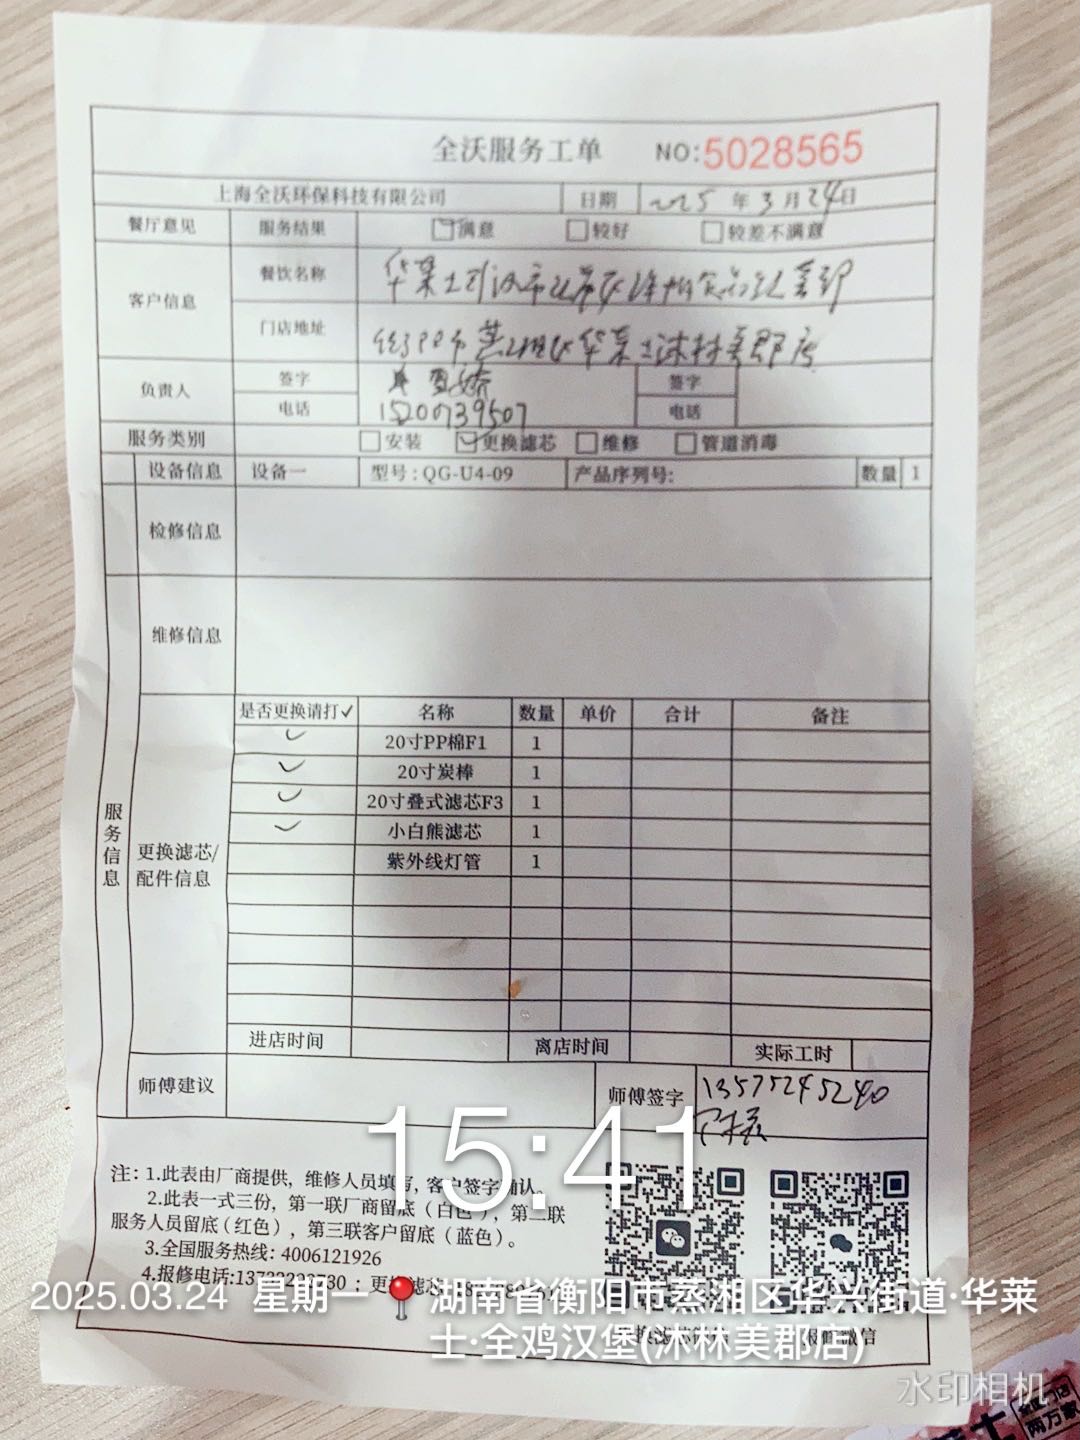 全沃服务工单 NO:5028565
上海全沃环保科技有限公司 日期 2025年3月24日
餐厅意见 服务结果 满意 较好 较差不满意
客户信息 餐饮名称 华莱士
门店地址 蒸湘区华莱士沐林美郡店
负责人 签字 签字
电话 15200739507 电话
服务类别 安装 更换滤芯 维修 管道消毒
设备信息 设备一 型号:QG-U4-09 产品序列号: 数量 1
检修信息
维修信息
服务信息
更换滤芯/
配件信息
是否更换请打✓ 名称 数量 单价 合计 备注
✓ 20寸PP棉F1 1
✓ 20寸炭棒 1
✓ 20寸叠式滤芯F3 1
✓ 小白熊滤芯 1
紫外线灯管 1
进店时间 离店时间 实际工时
师傅建议 师傅签字 13575245240
15:41
注: 1.此表由厂商提供, 维修人员填写, 客户签字确认。
2.此表一式三份, 第一联厂商留底(白色), 第二联
服务人员留底(红色), 第三联客户留底(蓝色)。
3.全国服务热线: 4006121926
4.报修电话:
2025.03.24 星期一 湖南省衡阳市蒸湘区华兴街道·华莱
士·全鸡汉堡(沐林美郡店)
水印相机
两万家